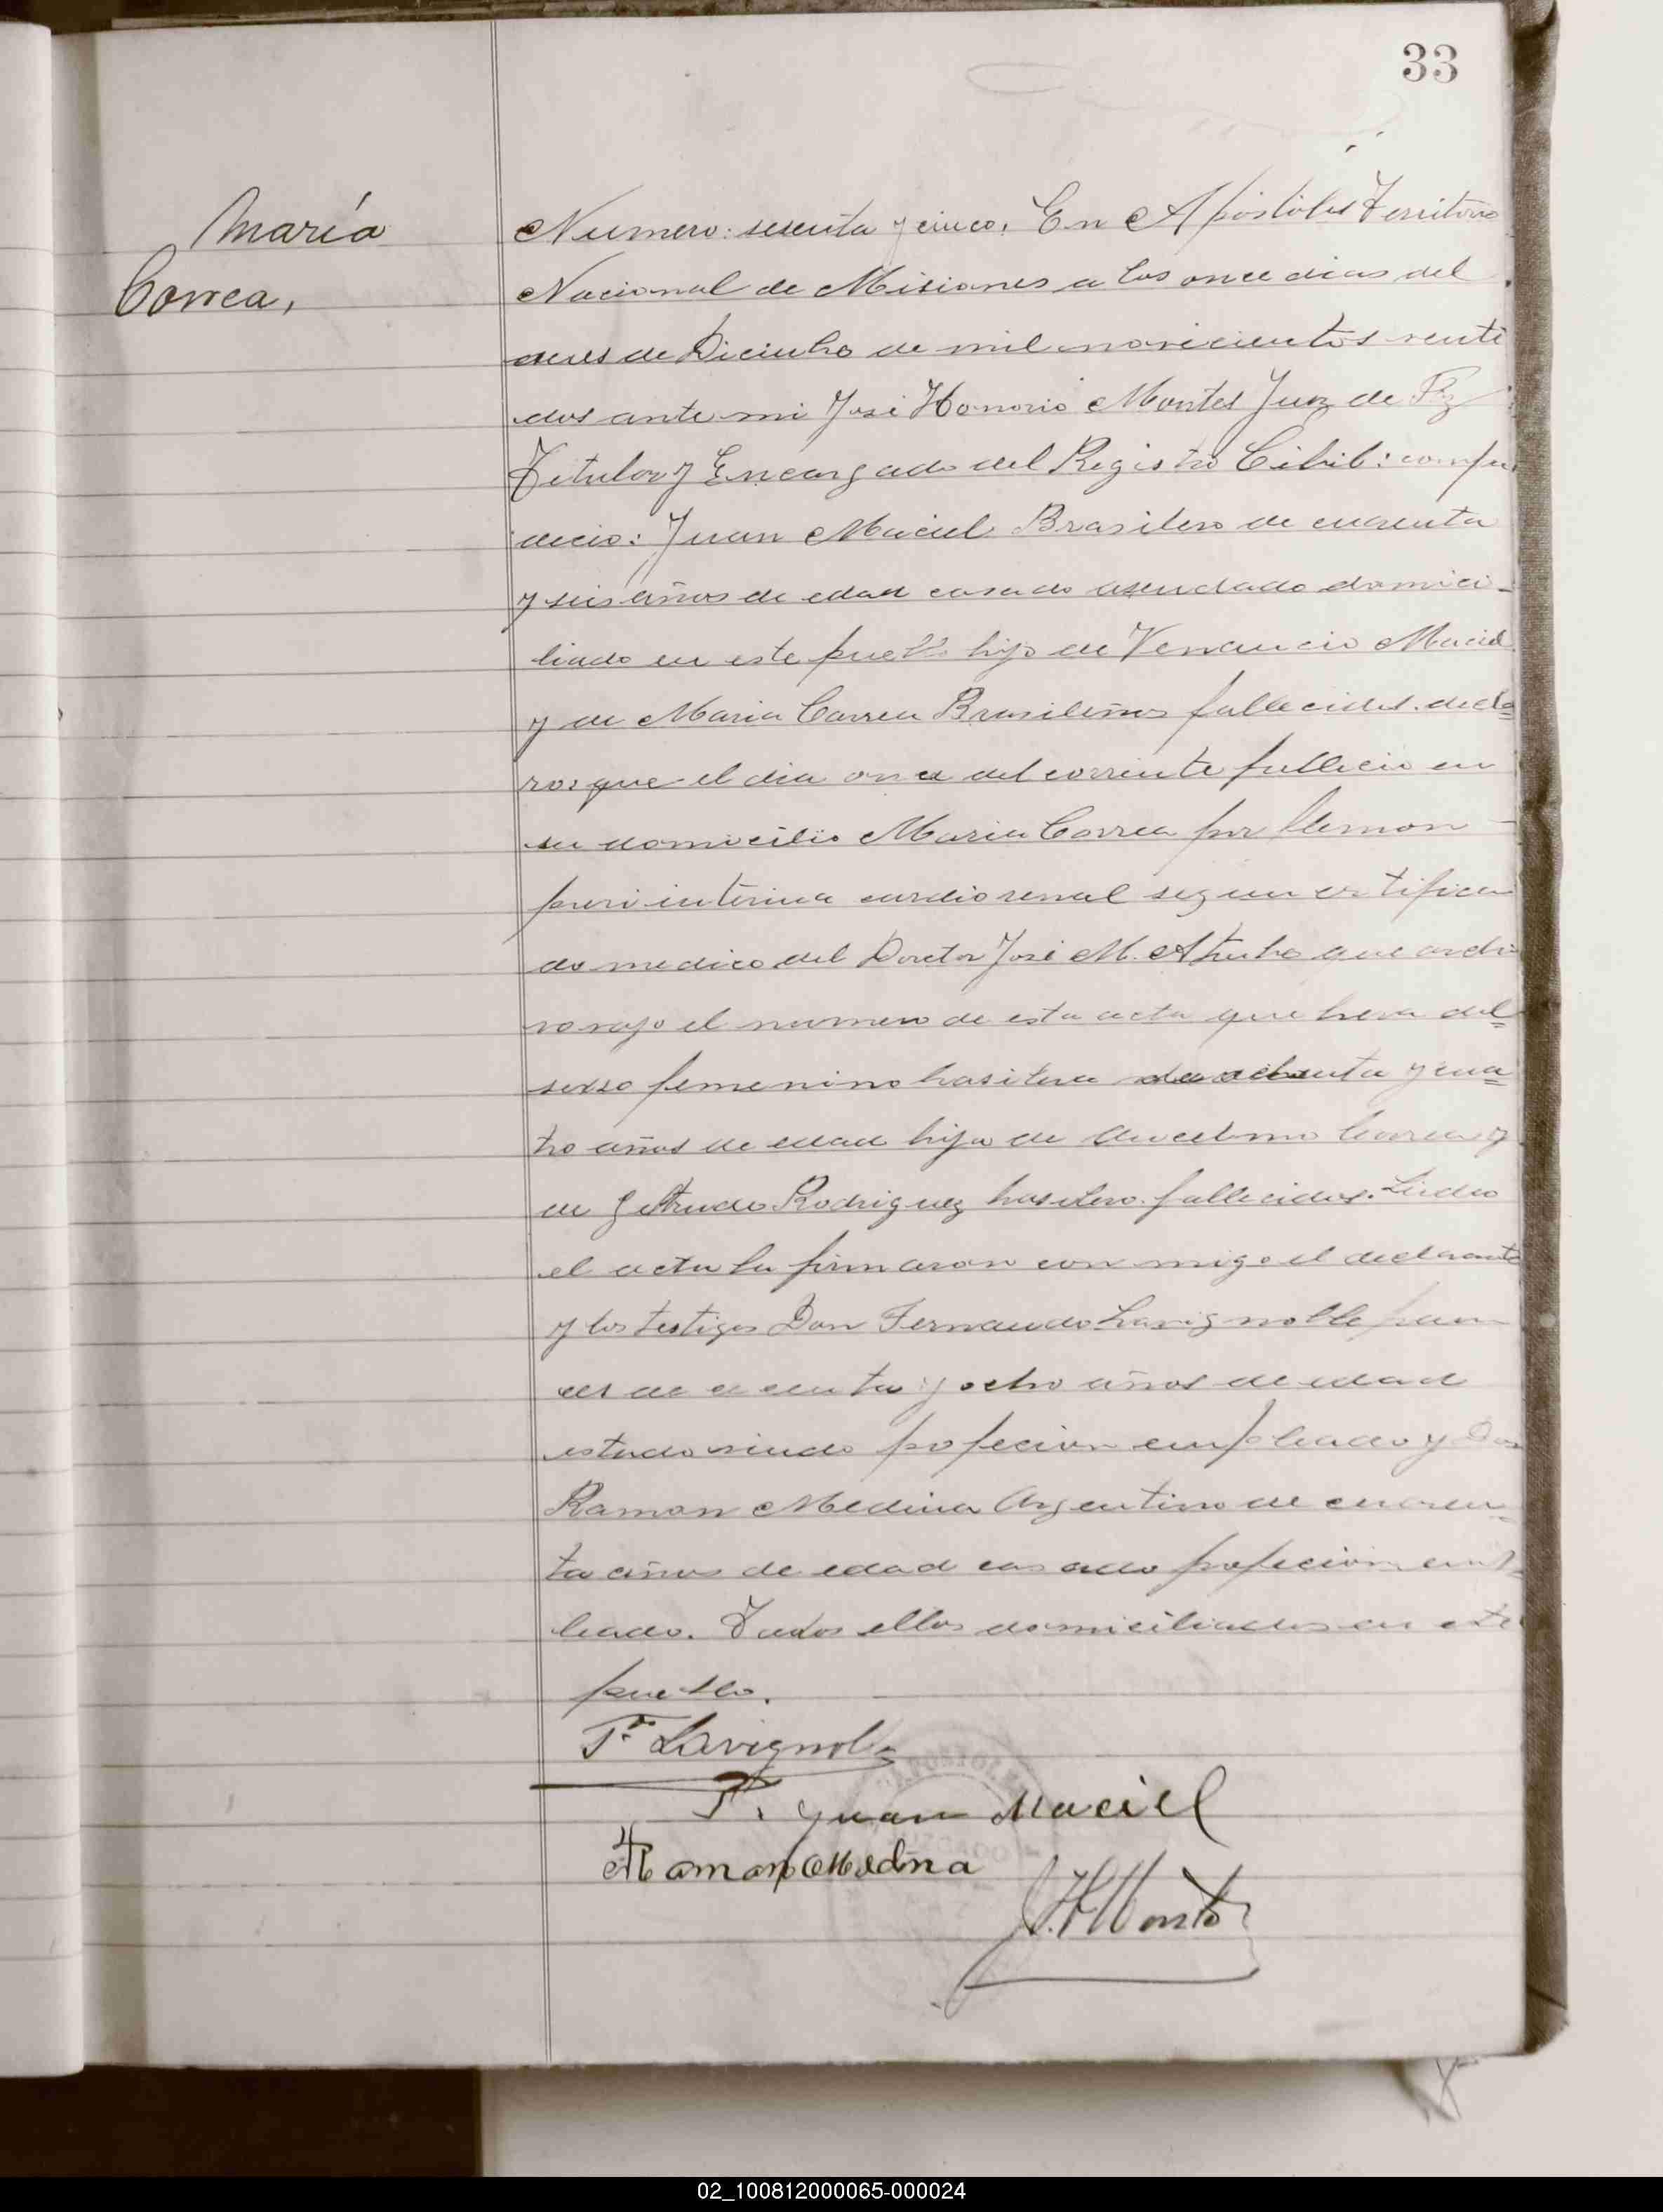 33
María
Correa,
Numero: sesenta y cinco. En Apóstoles Territorio
Nacional de Misiones a los once dias del
mes de Diciembre de mil novecientos venti
dos ante mi José Honorio Montes Juez de Paz
Titular y Encargado del Registro Cibil: compa
decio: Juan Maciel Brasilero de cuarenta
y seis años de edad casado asendado domici-
liado en este pueblo hijo de Venancio Maciel
y de Maria Correa Brasileños fallecidos. decla
ros que el dia once del corriente fallecio en
su domicilio Maria Correa por
cardio renal segun certifica
do medico del Doctor José M. que archi
vo vajo el numero de esta acta que hera del
secso femenino brasilera de ochenta y cua
tro años de edad hija de Ancelmo Correa y
de Getrudo Rodriguez brasilero fallecidos. Leida
el acta la firmaron con migo el declarante
y los testigos Don Fernando Lavignolle fran
ces de y ocho años de edad
estado viudo pofecion empleado y Don
Ramon Medina Argentino de cuaren-
ta años de edad casado pofecion emp
leado. Todos ellos domiciliados en este
pueblo.
F. Lavignolle
Juan Maciel
Ramon Medina
J. H. Montes
02_100812000065-000024